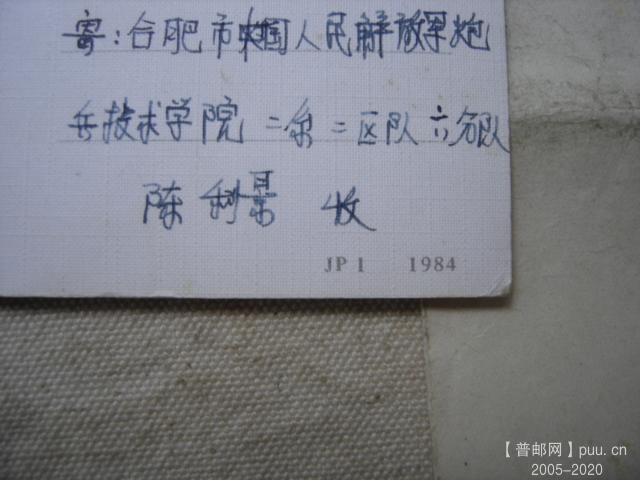 寄:合肥市中国人民解放军炮
兵技术学院二系二区队六分队
陈利景 收
JP 1 1984
【普邮网】puu.cn
2005-2020